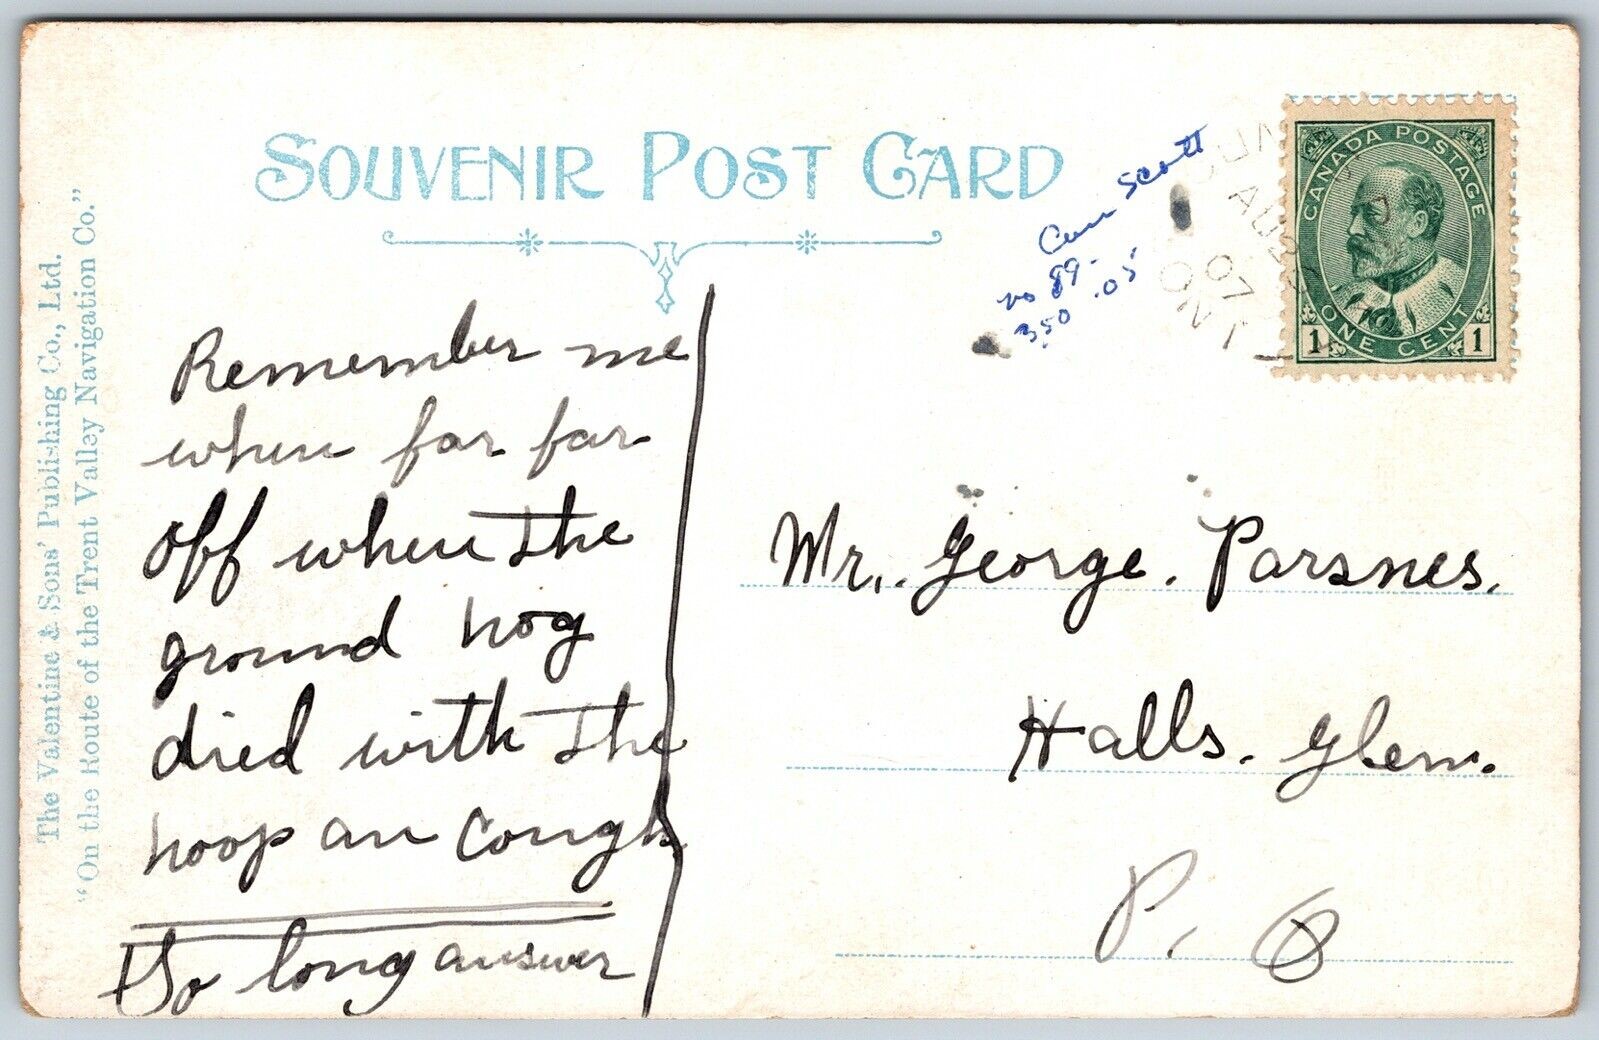 SOUVENIR POST CARD
The Valentine & Sons' Publishing Co., Ltd.
"On the Route of the Trent Valley Navigation Co."
Can Scott
no 89-
350 .05
AU
07
ONT
CANADA POSTAGE
1 ONE CENT 1
Remember me
when far far
off when the
ground hog
died with the
hoop an Cough
So long answer
Mr. George. Parsnes.
Halls. Glenn.
P. O